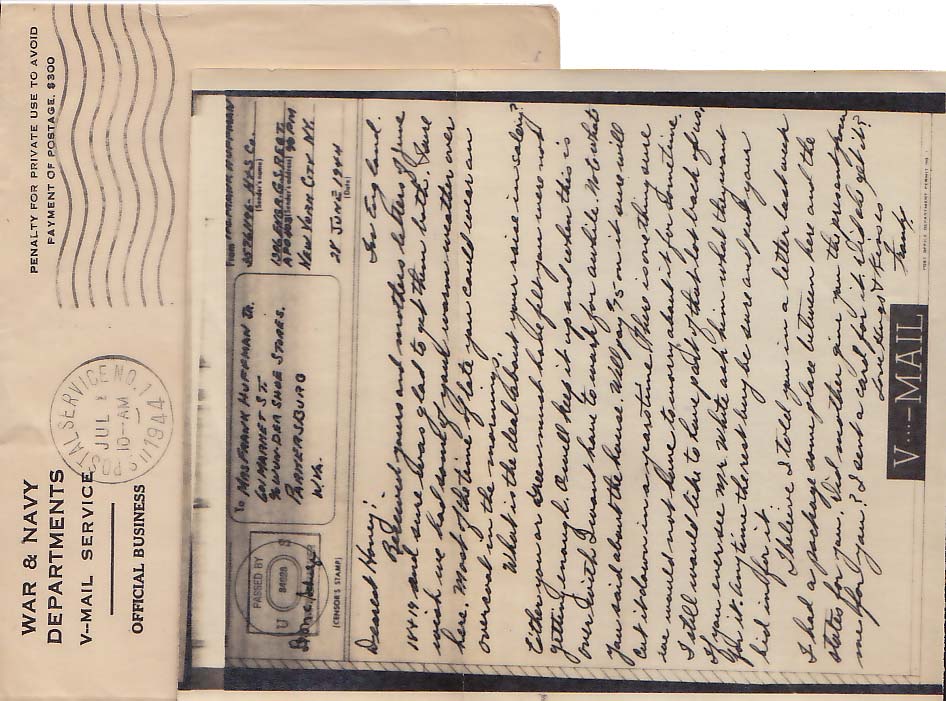 WAR & NAVY
DEPARTMENTS
V--MAIL SERVICE
OFFICIAL BUSINESS
PENALTY FOR PRIVATE USE TO AVOID
PAYMENT OF POSTAGE, $300
U.S. POSTAL SERVICE NO. 1
JUL 1
10-AM
1944
PASSED BY
U S
(CENSOR'S STAMP)
To MRS FRANK HUFFMAN JR.
601 MARKET ST.
% WUNDER SHOE STORES.
PARKERSBURG
W.VA.
From FRANK HUFFMAN
HQS Co.
(Sender's name)
1306 ENGR. G.S. REGT.
(Sender's address)
APO 403 % PM
NEW YORK CITY N.Y.
28 JUNE 1944
(Date)
Dearest Honey! In England.
Received yours and mothers letters of June
18 & 19 and sure was glad to get them both. I sure
wish we had some of your warm weather over
here. Most of the time of late you could wear an
overcoat in the mornings.
What is the deal about your raise in salary?
Either you or Green must have felt you were not
getting enough. Or will keep it up and when this is
over with I wont have to work for awhile. No but what
you said about the house. Well say 75 on it sure will
cut it down in a short time. This is one thing sure
we would not have to worry about it for sometime.
I still would like to have part of that lot back of us,
If you ever see Mr White ask him what they want
for it. Any time they want to sell be sure and put your
bid in for it.
I believe I told you in a letter last week
I had a package some place between here and the
states for you. Did mother give you the present from
me for you? I sent a card for it. Did she get it?
Love Hugs & Kisses
Frank.
V---MAIL